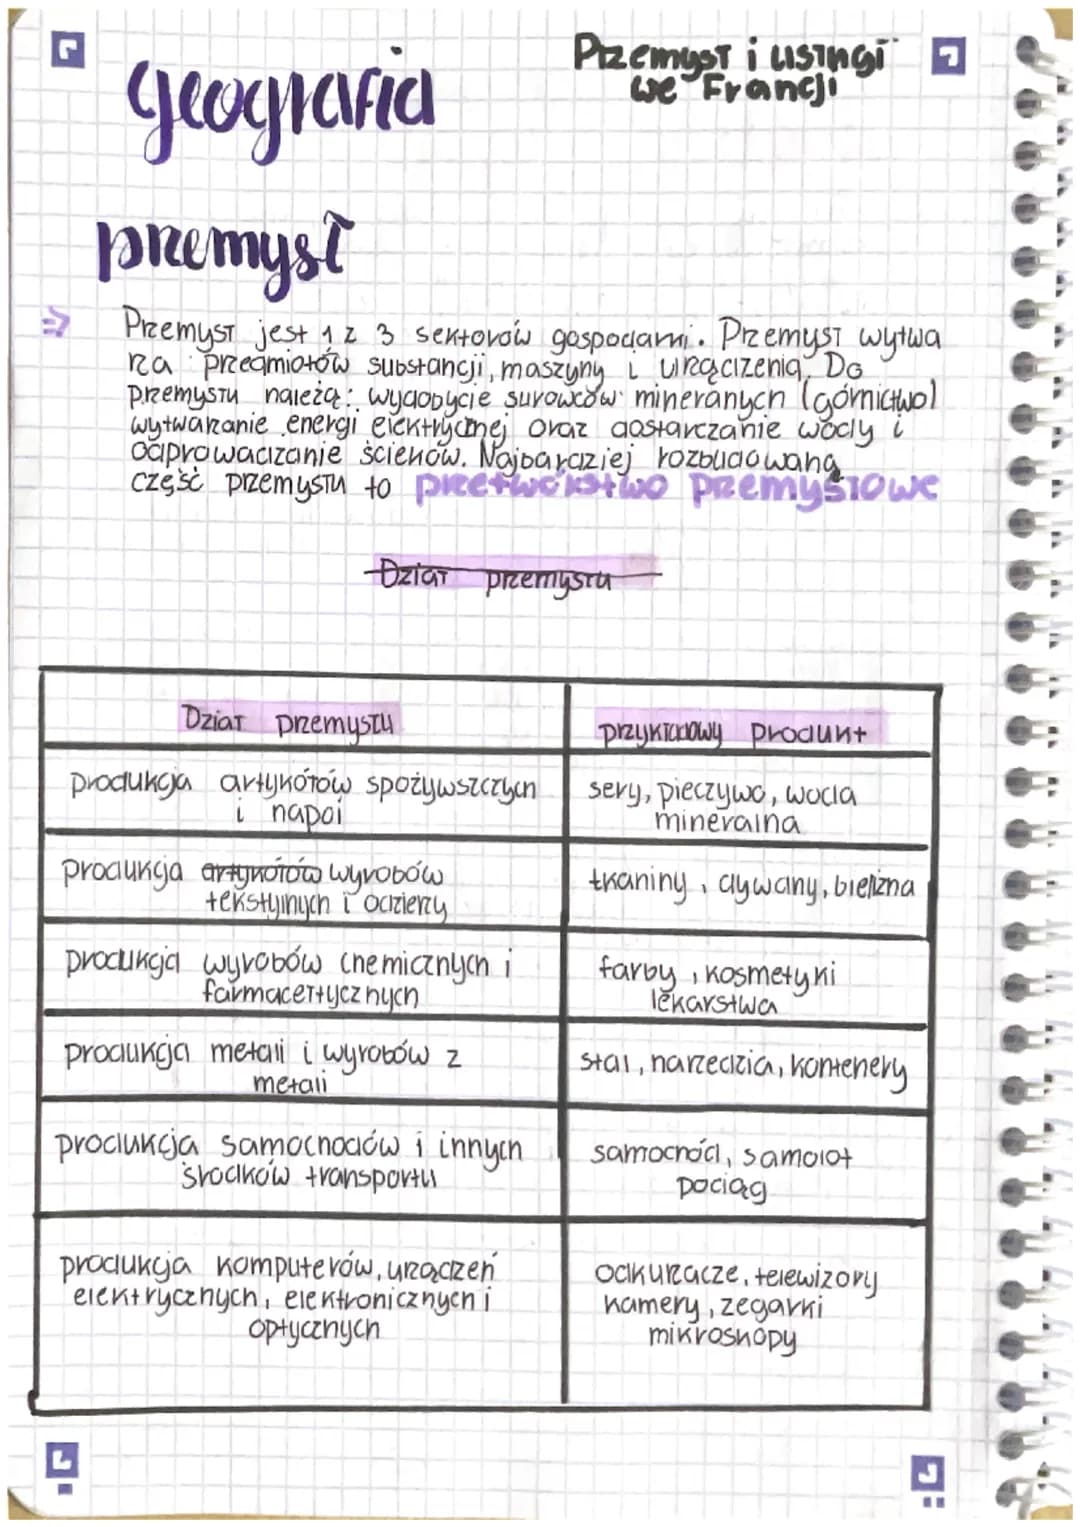 geografia
Przemysł i usługi
we Francji
przemysł
=> Przemysł jest 1 z 3 sektorów gospodarki. Przemysł wytwa
rza przedmiotów substancji, maszyny i urządzenia. Do
przemysłu należą: wydobycie surowców mineranych (górnictwo)
wytwarzanie energi elektrycznej oraz dostarczanie wody i
odprowadzanie ścieków. Najbardziej rozbudowaną
część przemysłu to przetwórstwo przemysłowe
Dział przemysłu
Dział przemysłu
przykładowy produkt
produkcja artykółów spożywszczych
i napoi
sery, pieczywo, woda
mineralna
produkcja artykółów wyrobów
tekstylnych i odzierzy
tkaniny, dywany, bielizna
produkcja wyrobów chemicznych i
farmaceutycznych
farby, kosmetyki
lekarstwa
produkcja metali i wyrobów z
metali
stal, narzedzia, kontenery
produkcja samochodów i innych
środków transportu
samochód, samolot
pociąg
produkcja komputerów, urządzeń
elektrycznych, elektronicznych i
optycznych
odkurzacze, telewizory
kamery, zegarki
mikroskopy